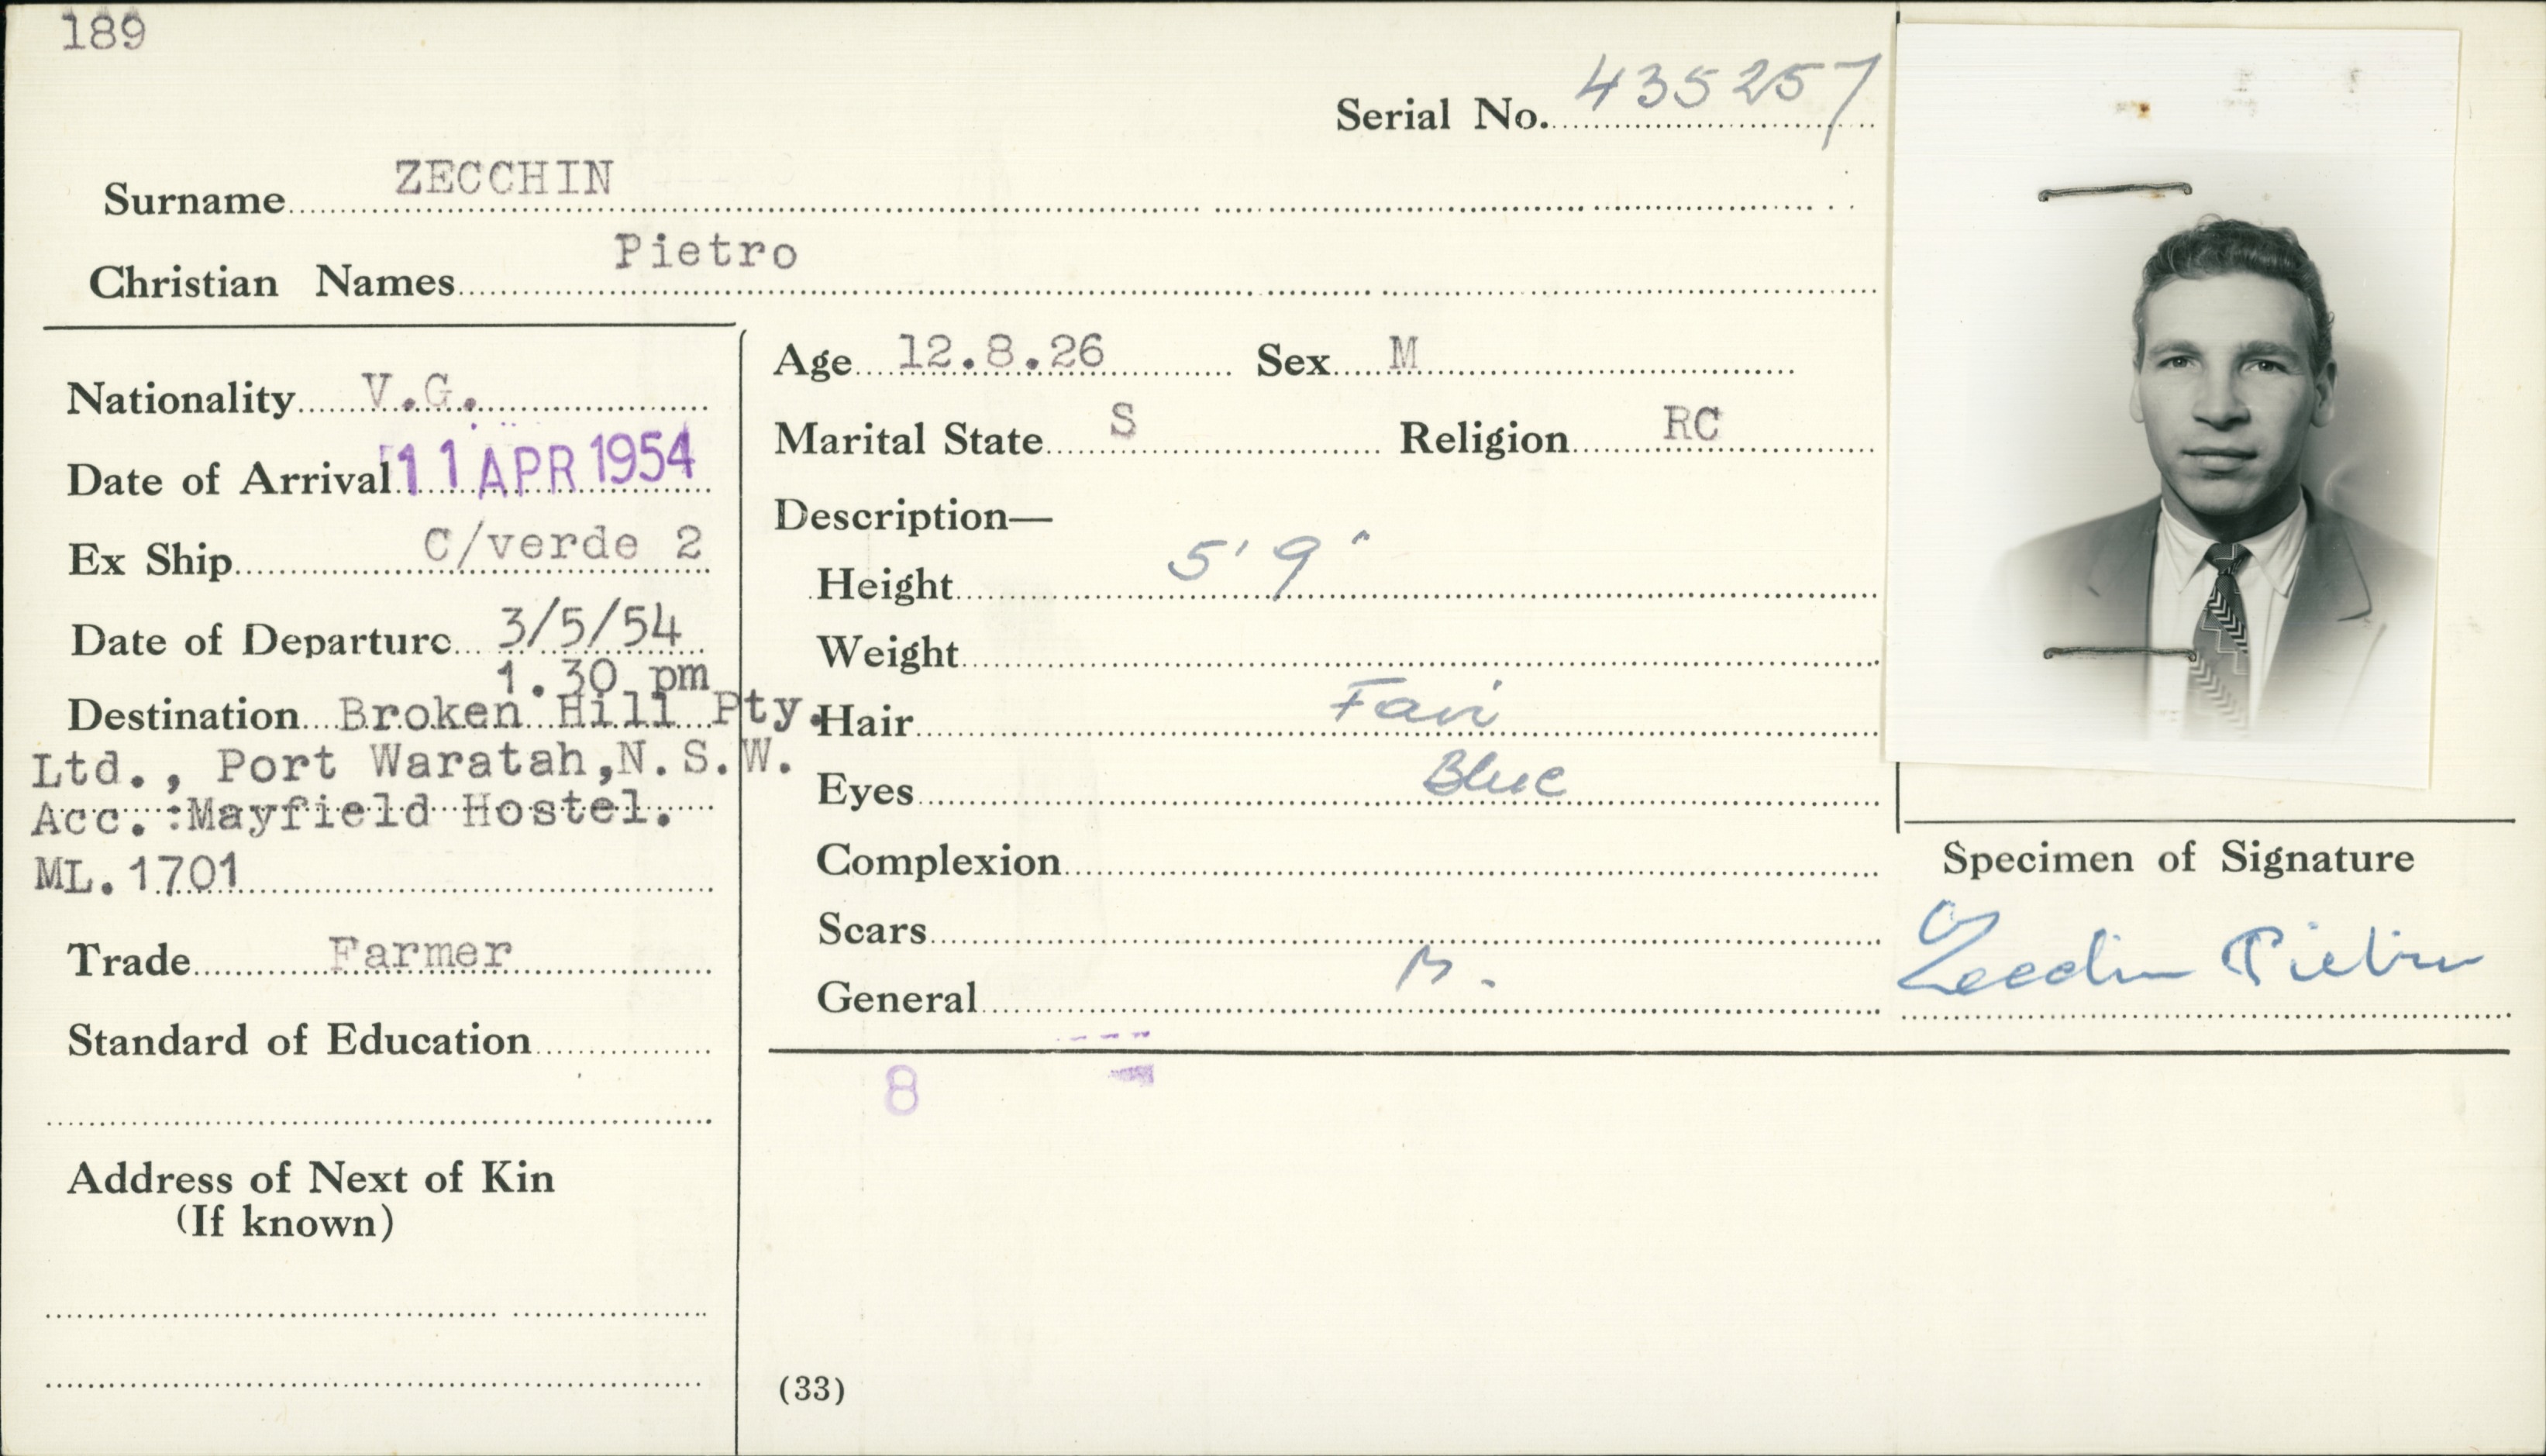 189
Serial No. 435257
Surname ZECCHIN
Christian Names Pietro
Nationality V.G.
Date of Arrival 11 APR 1954
Ex Ship C/verde 2
Date of Departure 3/5/54
1.30 pm
Destination Broken Hill Pty.
Ltd., Port Waratah, N.S.W.
Acc.:Mayfield Hostel.
ML.1701
Trade Farmer
Standard of Education
Address of Next of Kin
(If known)
Age 12.8.26 Sex M
Marital State S Religion RC
Description—
Height 5' 9"
Weight
Hair Fair
Eyes Blue
Complexion
Scars
General
8
(33)
Specimen of Signature
Zecchin Pietro